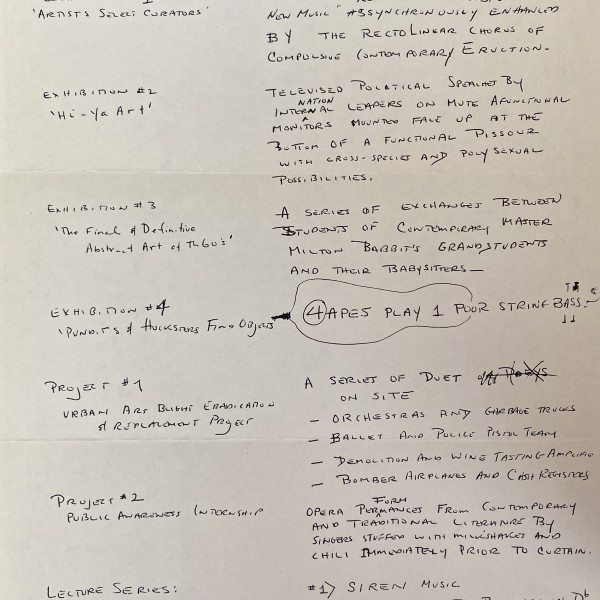 'Artists Select Curators'
New Music" Assynchronously Enhanced
By the Rectolinear Chorus of
Compulsive Contemporary Eruction.
Exhibition #2
'Hi-Ya Art'
Televised Political Speaches By
Nation
Internal Leaders on Mute Afunctional
Monitors Mounted Face Up at the
Bottom of a Functional Pissour
with cross-species and polysexual
Possibilities.
Exhibition #3
'The Final & Definitive
Abstract Art of Th60's'
A series of exchanges Between
Students of Contemporary Master
Milton Babbit's Grandstudents
and their Babysitters—
Exhibition #4
'Pundits & Hucksters Find Objects
4 Apes Play 1 Poor String Bass
Project #1
Urban Art Blight Eradication
& Replacement Project
A series of Duet
on site
– Orchestras and Garbage Trucks
– Ballet and Police Pistol Team
– Demolition and Wine Tasting-Amplified
– Bomber Airplanes and Cash Registers
Project #2
Public Awareness Internship
Form
Opera Permances From Contemporary
and Traditional Literature By
Singers stuffed with milkshakes and
chili immediately prior to curtain.
Lecture Series:
#1) Siren Music